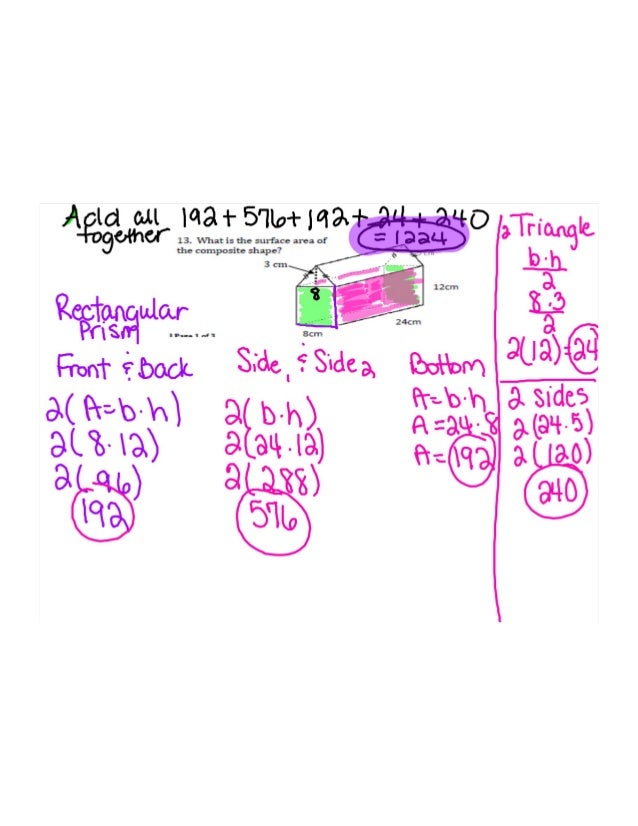 Add all together 192 + 576 + 192 + 24 + 240
= 1224
13. What is the surface area of
the composite shape?
3 cm
8
12cm
24cm
8cm
Rectangular
Prism
Front & Back
2(A=b·h)
2(8·12)
2(96)
192
Side 1 & Side 2
2(b·h)
2(24·12)
2(288)
576
Bottom
A=b·h
A=24·8
A=192
2 Triangle
b·h
2
8·3
2
2(12)=24
2 sides
2(24·5)
2(120)
240